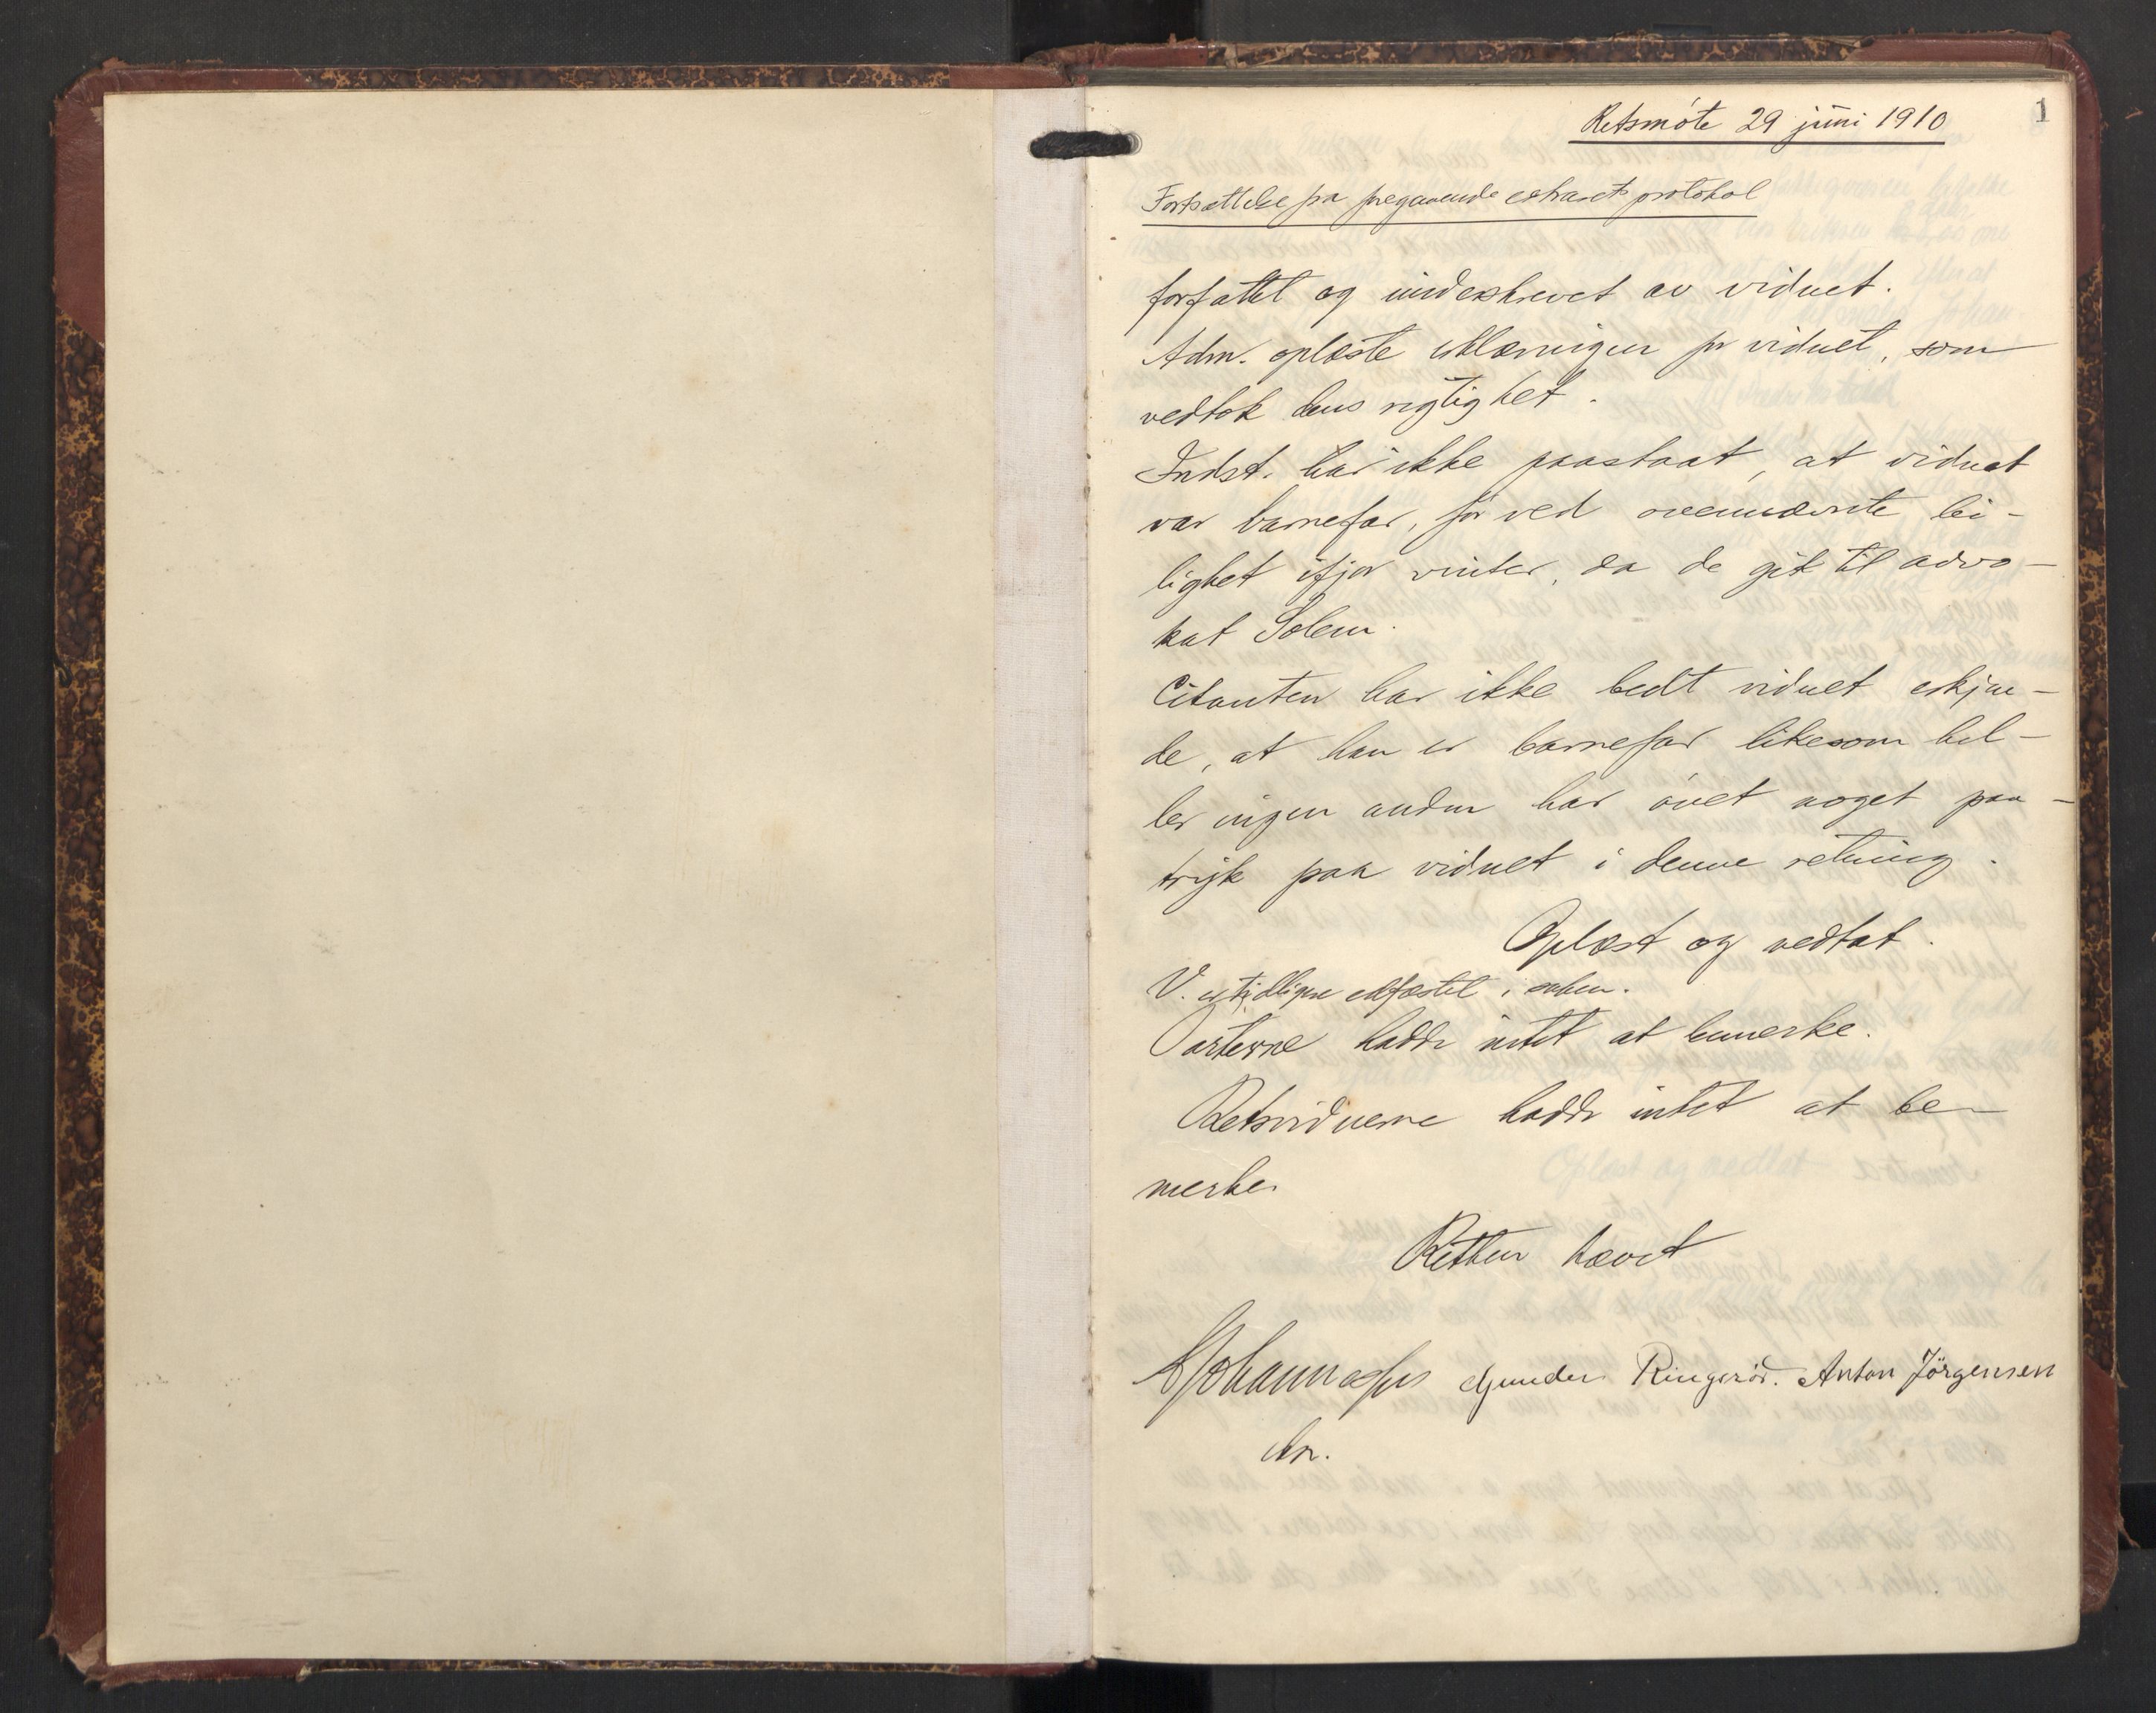 Retsmöte 29 juni 1910
1
Fortsættelse fra foregaaende extraretsprotokol
forfattet og underskrevet av vidnet.
Adm. oplæste erklæringen for vidnet, som
vedtok dens rigtighet.
Indst. har ikke paastaat, at vidnet
var barnefar, før ved ovennævnte lei-
lighet ifjor vinter, da de gik til advo-
kat Solem.
Citanten har ikke bedt vidnet erkjen-
de, at han er barnefar likesom hel-
ler ingen anden har övet noget paa-
tryk paa vidnet i denne retning.
Oplæst og vedtat.
V. er tidligere edfæstet i saken.
Parterne hadde intet at bemerke.
Retsvidnerne hadde intet at be-
merke.
Retten hævet
Johannesen Gunder Ringsröd. Anton Jörgensen